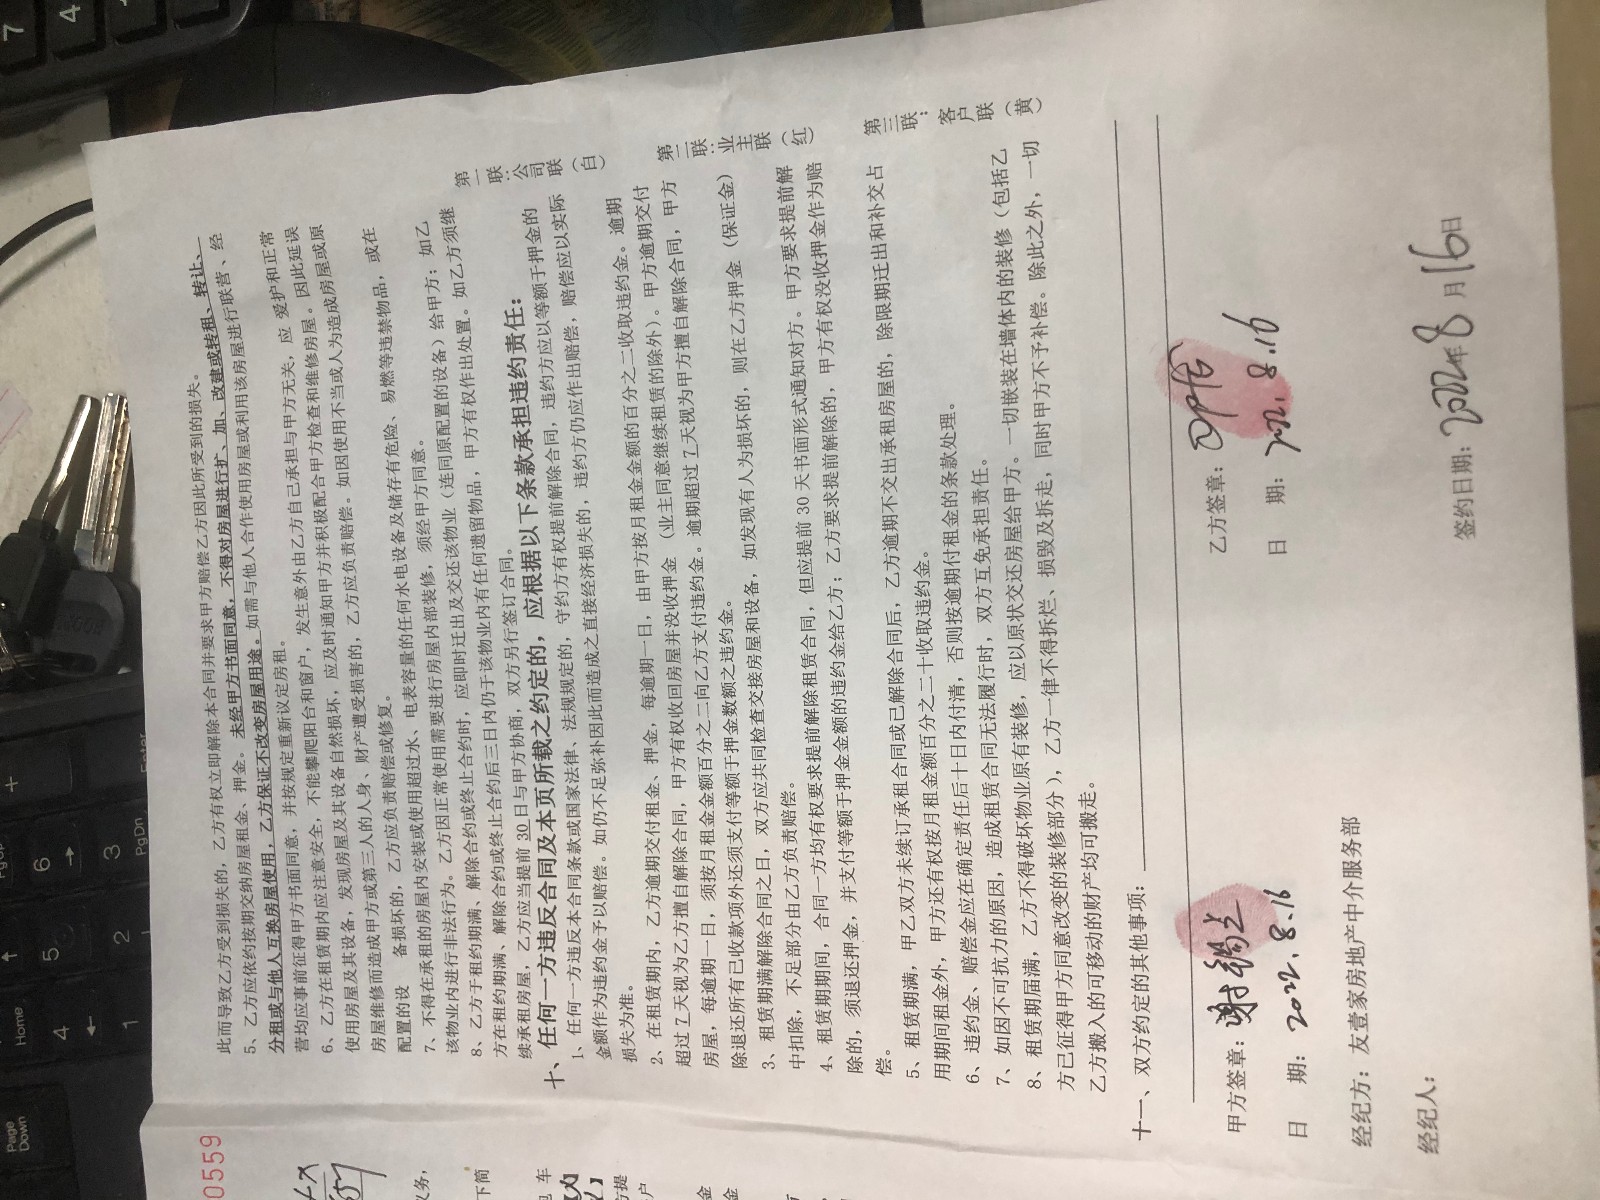 此而导致乙方受到损失的，乙方有权立即解除本合同并要求甲方赔偿乙方因此所受到的损失。
5、乙方应依约按期交纳房屋租金、押金。未经甲方书面同意，不得对房屋进行扩、加、改建或转租、转让、
分租或与他人互换房屋使用，乙方保证不改变房屋用途。如需与他人合作使用房屋或利用该房屋进行联营、经
营均应事前征得甲方书面同意，并按规定重新议定房租。
6、乙方在租赁期内应注意安全，不能攀爬阳台和窗户，发生意外由乙方自己承担与甲方无关，应 爱护和正常
使用房屋及其设备，发现房屋及其设备自然损坏，应及时通知甲方并积极配合甲方检查和维修房屋。因此延误
房屋维修而造成甲方或第三人的人身、财产遭受损害的，乙方应负责赔偿。如因使用不当或人为造成房屋或原
配置的设 备损坏的，乙方应负责赔偿或修复。
7、不得在承租的房屋内安装或使用超过水、电表容量的任何水电设备及储存有危险、易燃等违禁物品，或在
该物业内进行非法行为。乙方因正常使用需要进行房屋内部装修，须经甲方同意。
8、乙方于租约期满、解除合约或终止合约时，应即时迁出及交还该物业（连同原配置的设备）给甲方；如乙
方在租约期满、解除合约或终止合约后三日内仍于该物业内有任何遗留物品，甲方有权作出处置。如乙方须继
续承租房屋，乙方应当提前 30 日与甲方协商，双方另行签订合同。
十、任何一方违反合同及本页所载之约定的，应根据以下条款承担违约责任：
1、任何一方违反本合同条款或国家法律、法规规定的，守约方有权提前解除合同，违约方应以等额于押金的
金额作为违约金予以赔偿。如仍不足弥补因此而造成之直接经济损失的，违约方仍应作出赔偿，赔偿应以实际
损失为准。
2、在租赁期内，乙方逾期交付租金、押金，每逾期一日，由甲方按月租金金额的百分之二收取违约金。逾期
超过 7 天视为乙方擅自解除合同，甲方有权收回房屋并没收押金（业主同意继续租赁的除外）。甲方逾期交付
房屋，每逾期一日，须按月租金金额百分之二向乙方支付违约金。逾期超过 7 天视为甲方擅自解除合同，甲方
除退还所有已收款项外还须支付等额于押金数额之违约金。
3、租赁期满解除合同之日，双方应共同检查交接房屋和设备，如发现有人为损坏的，则在乙方押金（保证金）
中扣除，不足部分由乙方负责赔偿。
4、租赁期期间，合同一方均有权要求提前解除租赁合同，但应提前 30 天书面形式通知对方。甲方要求提前解
除的，须退还押金，并支付等额于押金金额的违约金给乙方；乙方要求提前解除的，甲方有权没收押金作为赔
偿。
5、租赁期满，甲乙双方未续订承租合同或已解除合同后，乙方逾期不交出承租房屋的，除限期迁出和补交占
用期间租金外，甲方还有权按月租金额百分之二十收取违约金。
6、违约金、赔偿金应在确定责任后十日内付清，否则按逾期付租金的条款处理。
7、如因不可抗力的原因，造成租赁合同无法履行时，双方互免承担责任。
8、租赁期届满，乙方不得破坏物业原有装修，应以原状交还房屋给甲方。一切嵌装在墙体内的装修（包括乙
方已征得甲方同意改变的装修部分），乙方一律不得拆烂、损毁及拆走，同时甲方不予补偿。除此之外，一切
乙方搬入的可移动的财产均可搬走。
十一、双方约定的其他事项：
甲方签章：
乙方签章：
日 期：2022.8.16
日 期：22.8.16
经纪方：友壹家房地产中介服务部
经纪人：
签约日期：2022年8月16日
第一联：公司联（白）
第二联：业主联（红）
第三联：客户联（黄）
0559
义务，
下简
包 车
方提
户
金
金
7
4
+
6
→
3
PgDn
↑
5
2
Home
4
←
1
Page
Down